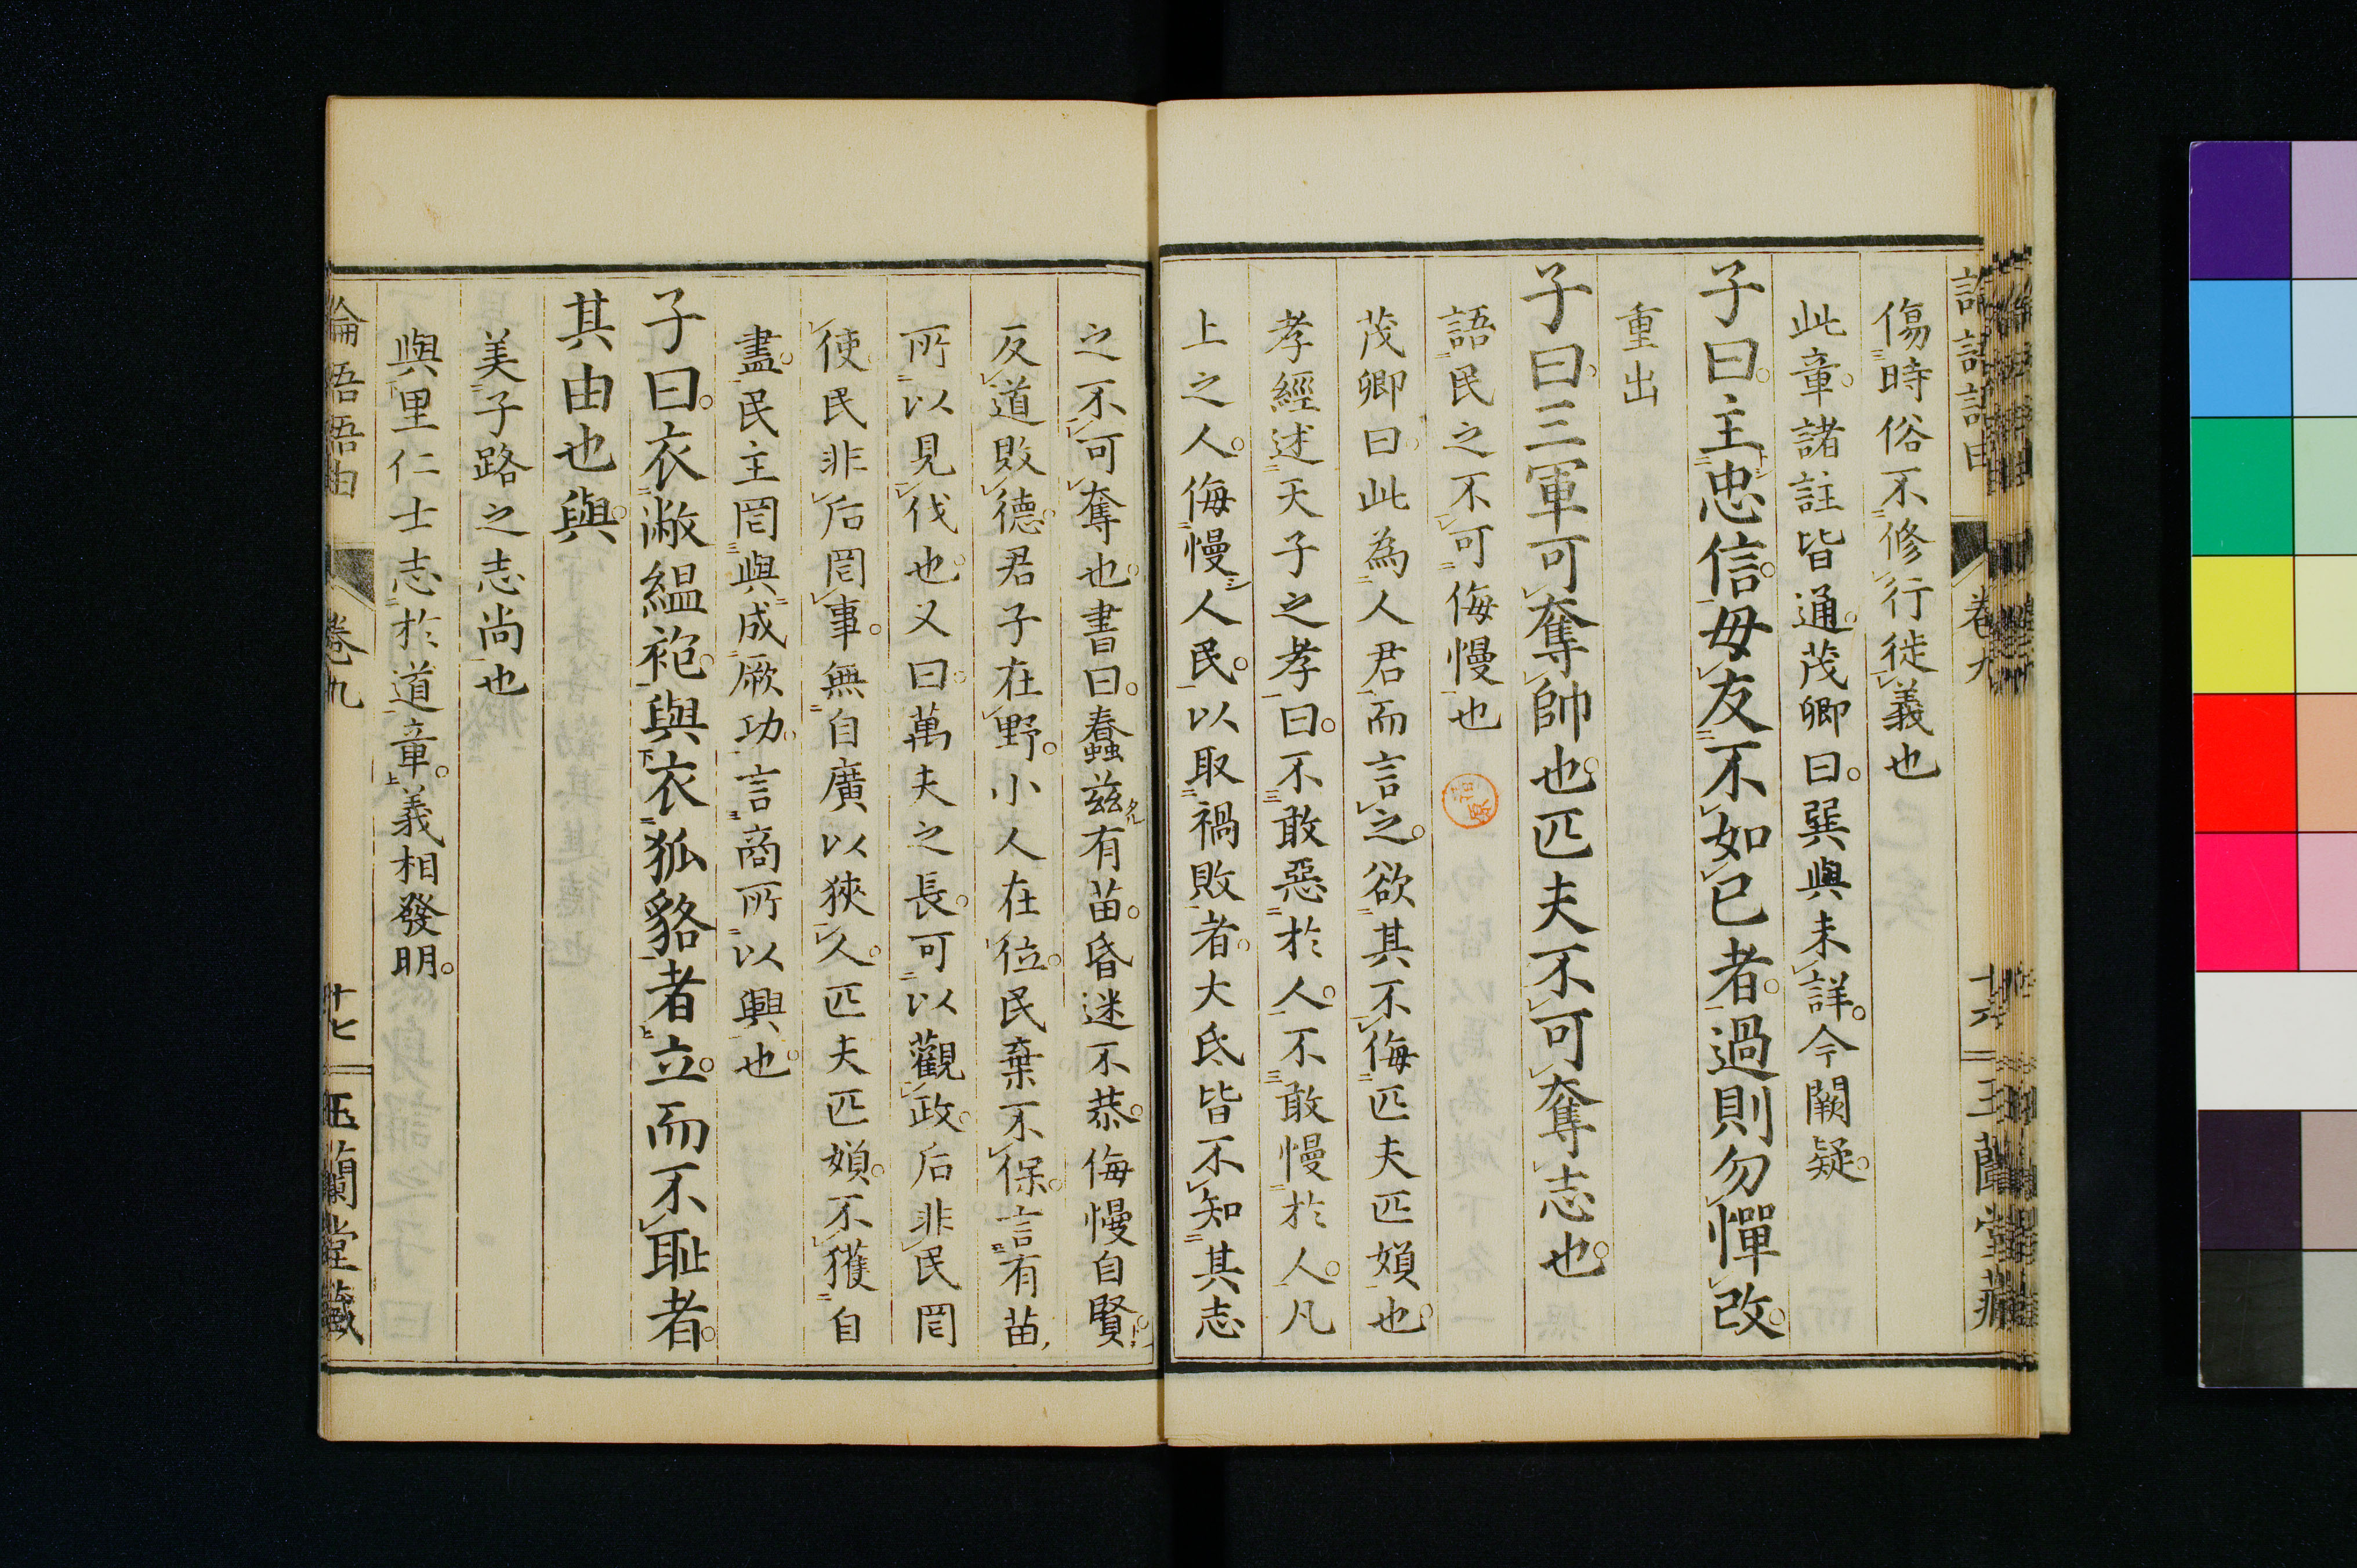 傷時俗不修行徙義也
此章諸註皆通茂卿曰巽與未詳今闕疑
子曰主忠信毋友不如已者過則勿憚改
重出
子曰三軍可奪帥也匹夫不可奪志也
語民之不可侮慢也
茂卿曰此為人君而言之欲其不侮匹夫匹婦也
孝經述天子之孝曰不敢惡於人不敢慢於人凡
上之人侮慢人民以取禍敗者大氐皆不知其志
之不可奪也書曰蠢茲有苗昏迷不恭侮慢自賢
反道敗德君子在野小人在位民棄不保言有苗
所以見伐也又曰萬夫之長可以觀政后非民罔
使民非后罔事無自廣以狹人匹夫匹婦不獲自
盡民主罔與成厥功言商所以興也
子曰衣敝縕袍與衣狐貉者立而不恥者
其由也與
美子路之志尚也
與里仁士志於道章義相發明
卷九
十七
玉蘭堂藏